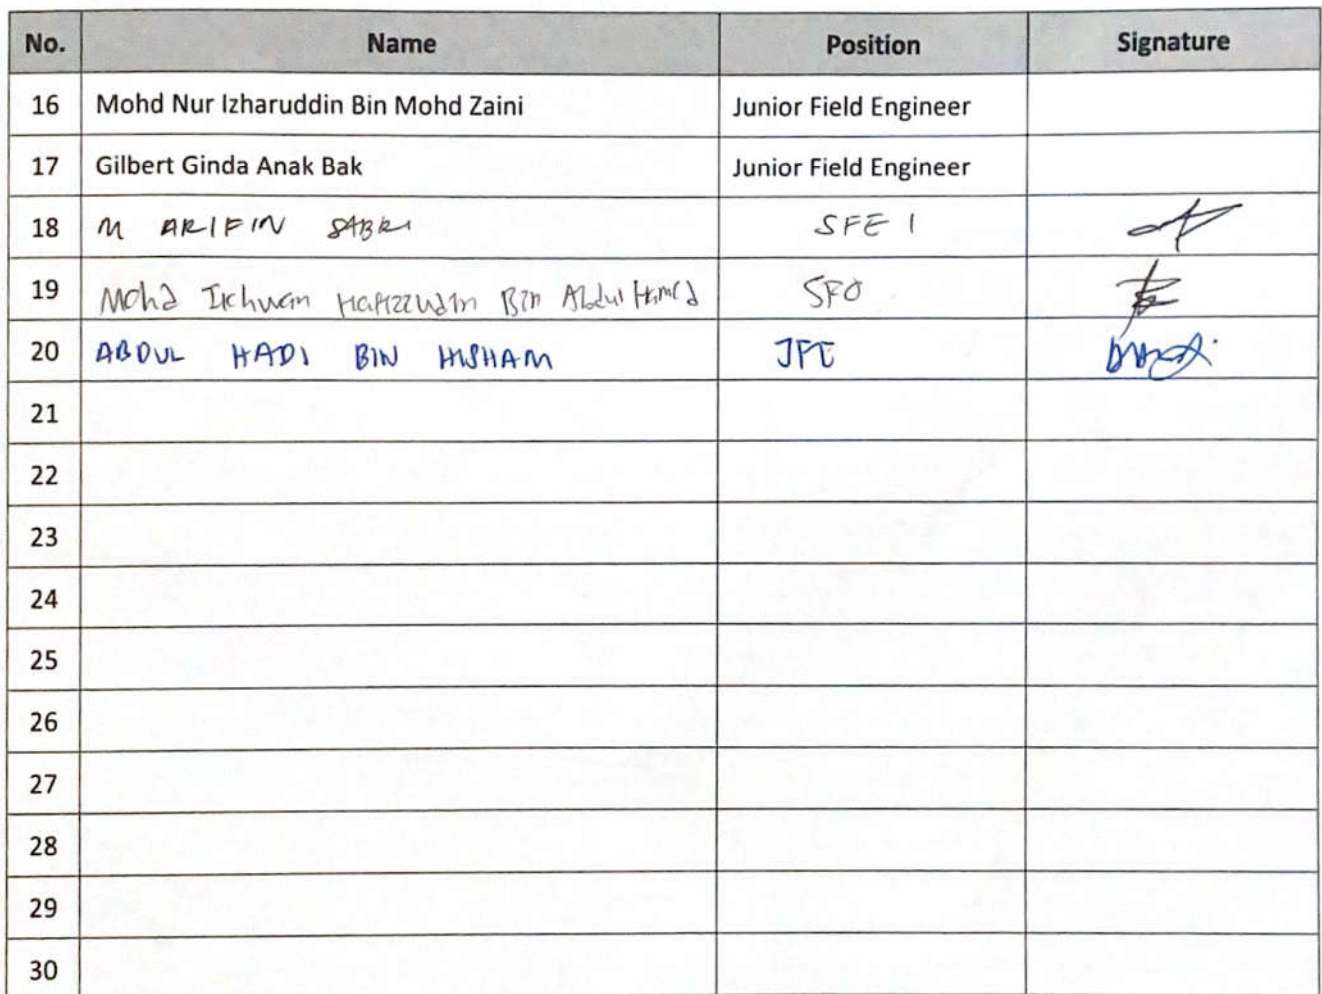 No. Name Position Signature
16 Mohd Nur Izharuddin Bin Mohd Zaini Junior Field Engineer
17 Gilbert Ginda Anak Bak Junior Field Engineer
18 M ARIFIN SABRI SFE 1
19 Mohd Bin Abdul Hamid SFO
20 ABDUL HADI BIN HISHAM JFE
21
22
23
24
25
26
27
28
29
30